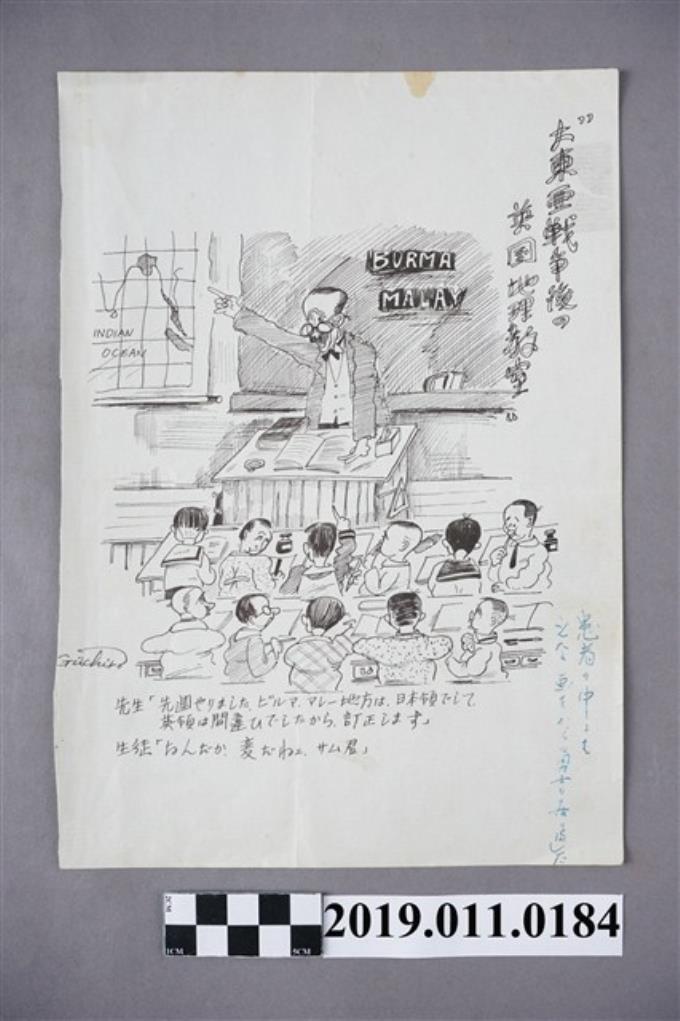 "大東亜戦争後の
英国地理教室"
BURMA
MALAY
INDIAN
OCEAN
Guchiro
先生「先週やりました、ビルマ、マレー地方は、日本領でして
英領は間違ひでしたから、訂正します」
生徒「なんだか、変だねェ、サム君」
患者の中にも
2019.011.0184
2CM
1CM
5CM